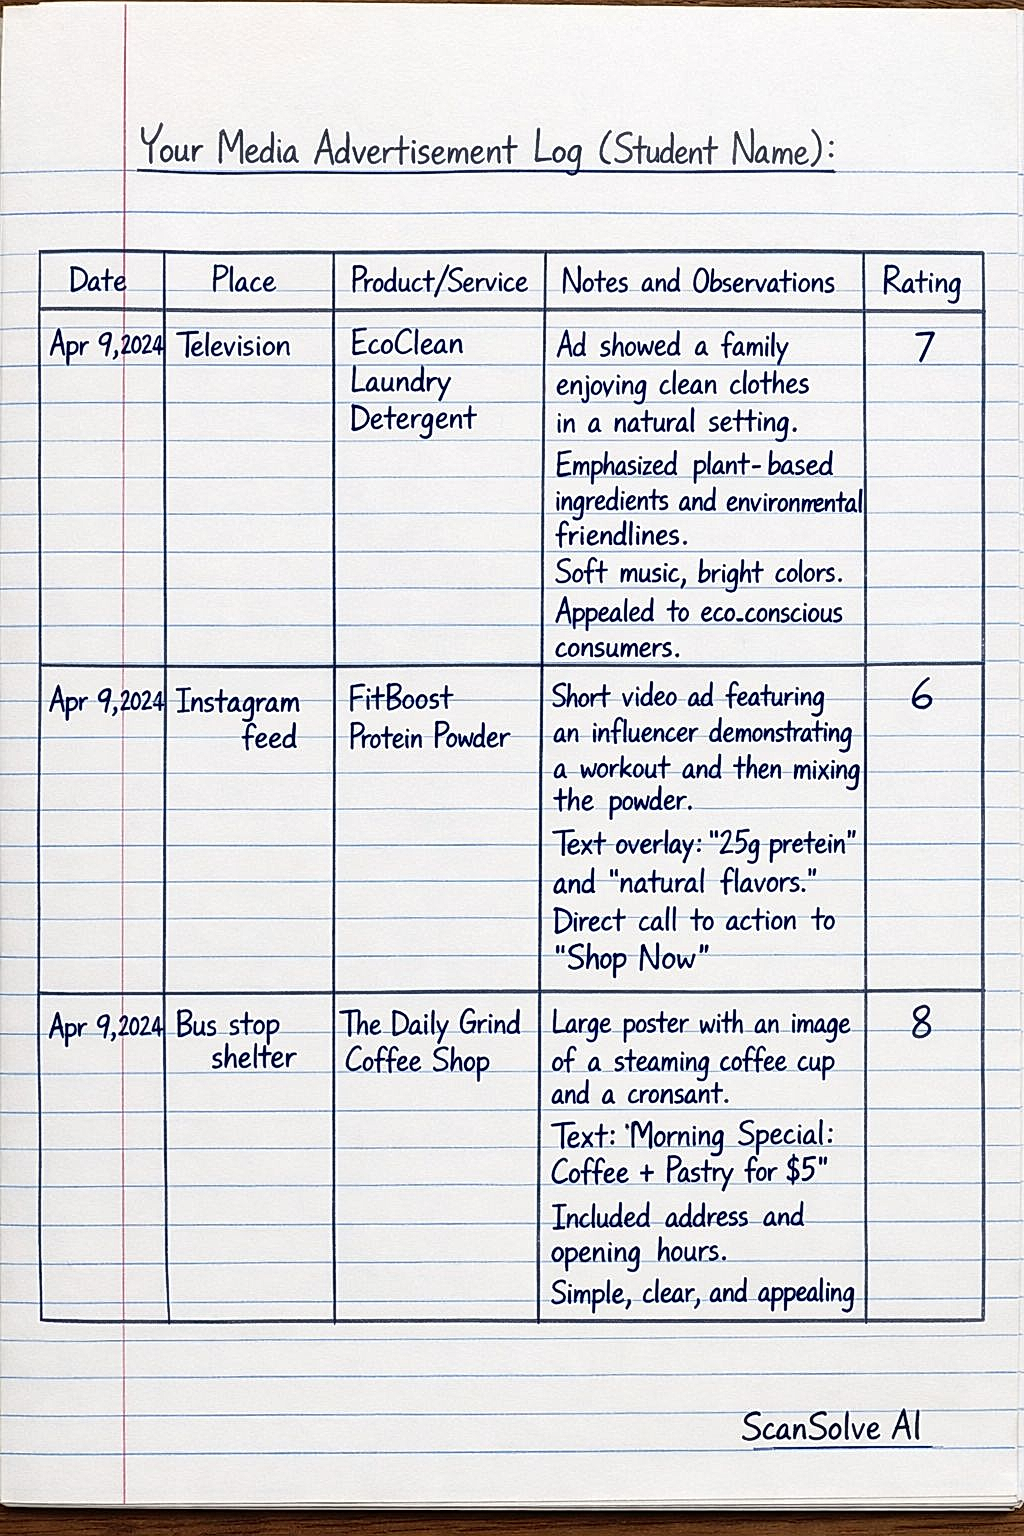 Your Media Advertisement Log (Student Name):
Date Place Product/Service Notes and Observations Rating
Apr 9,2024 Television EcoClean Ad showed a family 7
Laundry enjoving clean clothes
Detergent in a natural setting.
Emphasized plant-based
ingredients and environmental
friendlines.
Soft music, bright colors.
Appealed to eco-conscious
consumers.
Apr 9,2024 Instagram FitBoost Short video ad featuring 6
feed Protein Powder an influencer demonstrating
a workout and then mixing
the powder.
Text overlay: "25g pretein"
and "natural flavors."
Direct call to action to
"Shop Now"
Apr 9,2024 Bus stop The Daily Grind Large poster with an image 8
shelter Coffee Shop of a steaming coffee cup
and a cronsant.
Text: 'Morning Special:
Coffee + Pastry for $5"
Included address and
opening hours.
Simple, clear, and appealing
ScanSolve AI